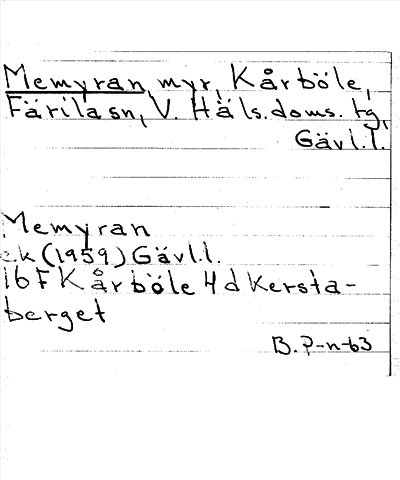 Memyran, myr, Kårböle,
Färila sn, V. Häls. doms. tg,
Gävl.l.
Memyran
e.k (1959) Gävl.l.
16 F Kårböle 4 d Kersta-
berget
B. P-n-63